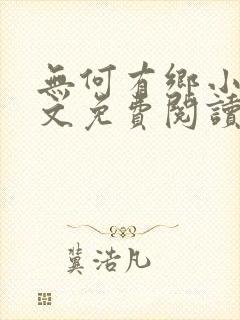 無何有鄉小
文免費閱讀
冀浩凡